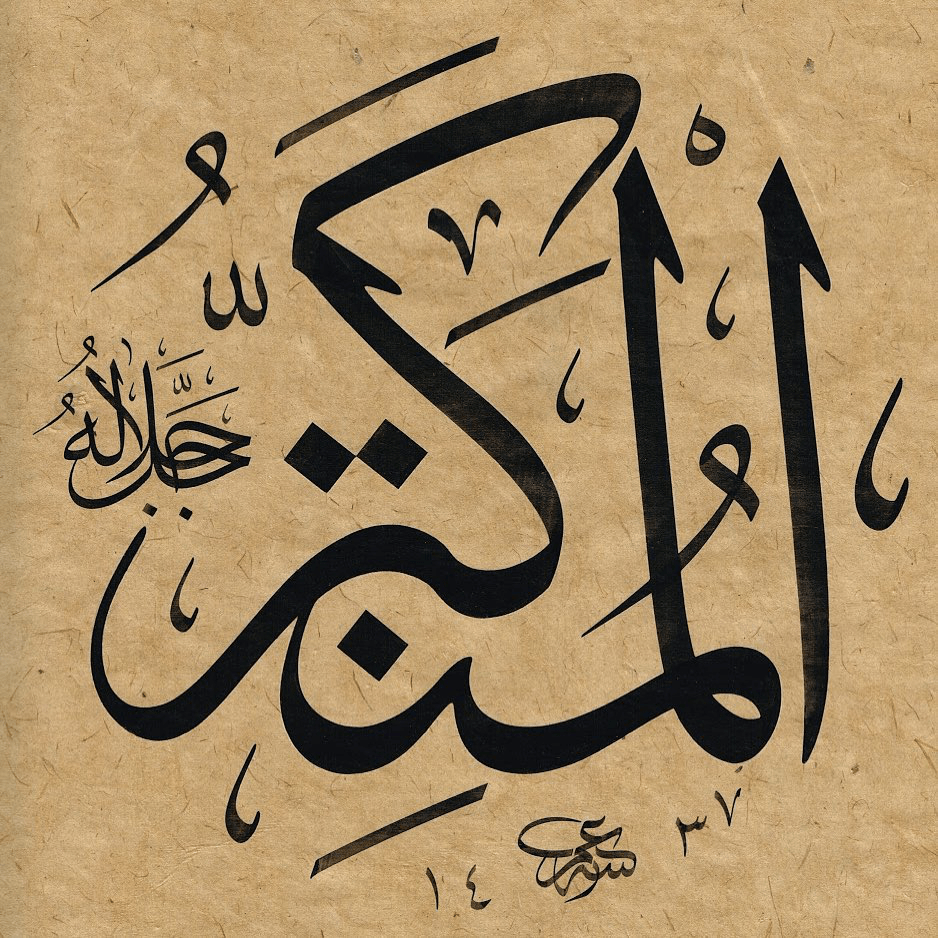 الْمُتَكَبِّرُ
جَلَّ جَلَالُهُ
١٤٣٧